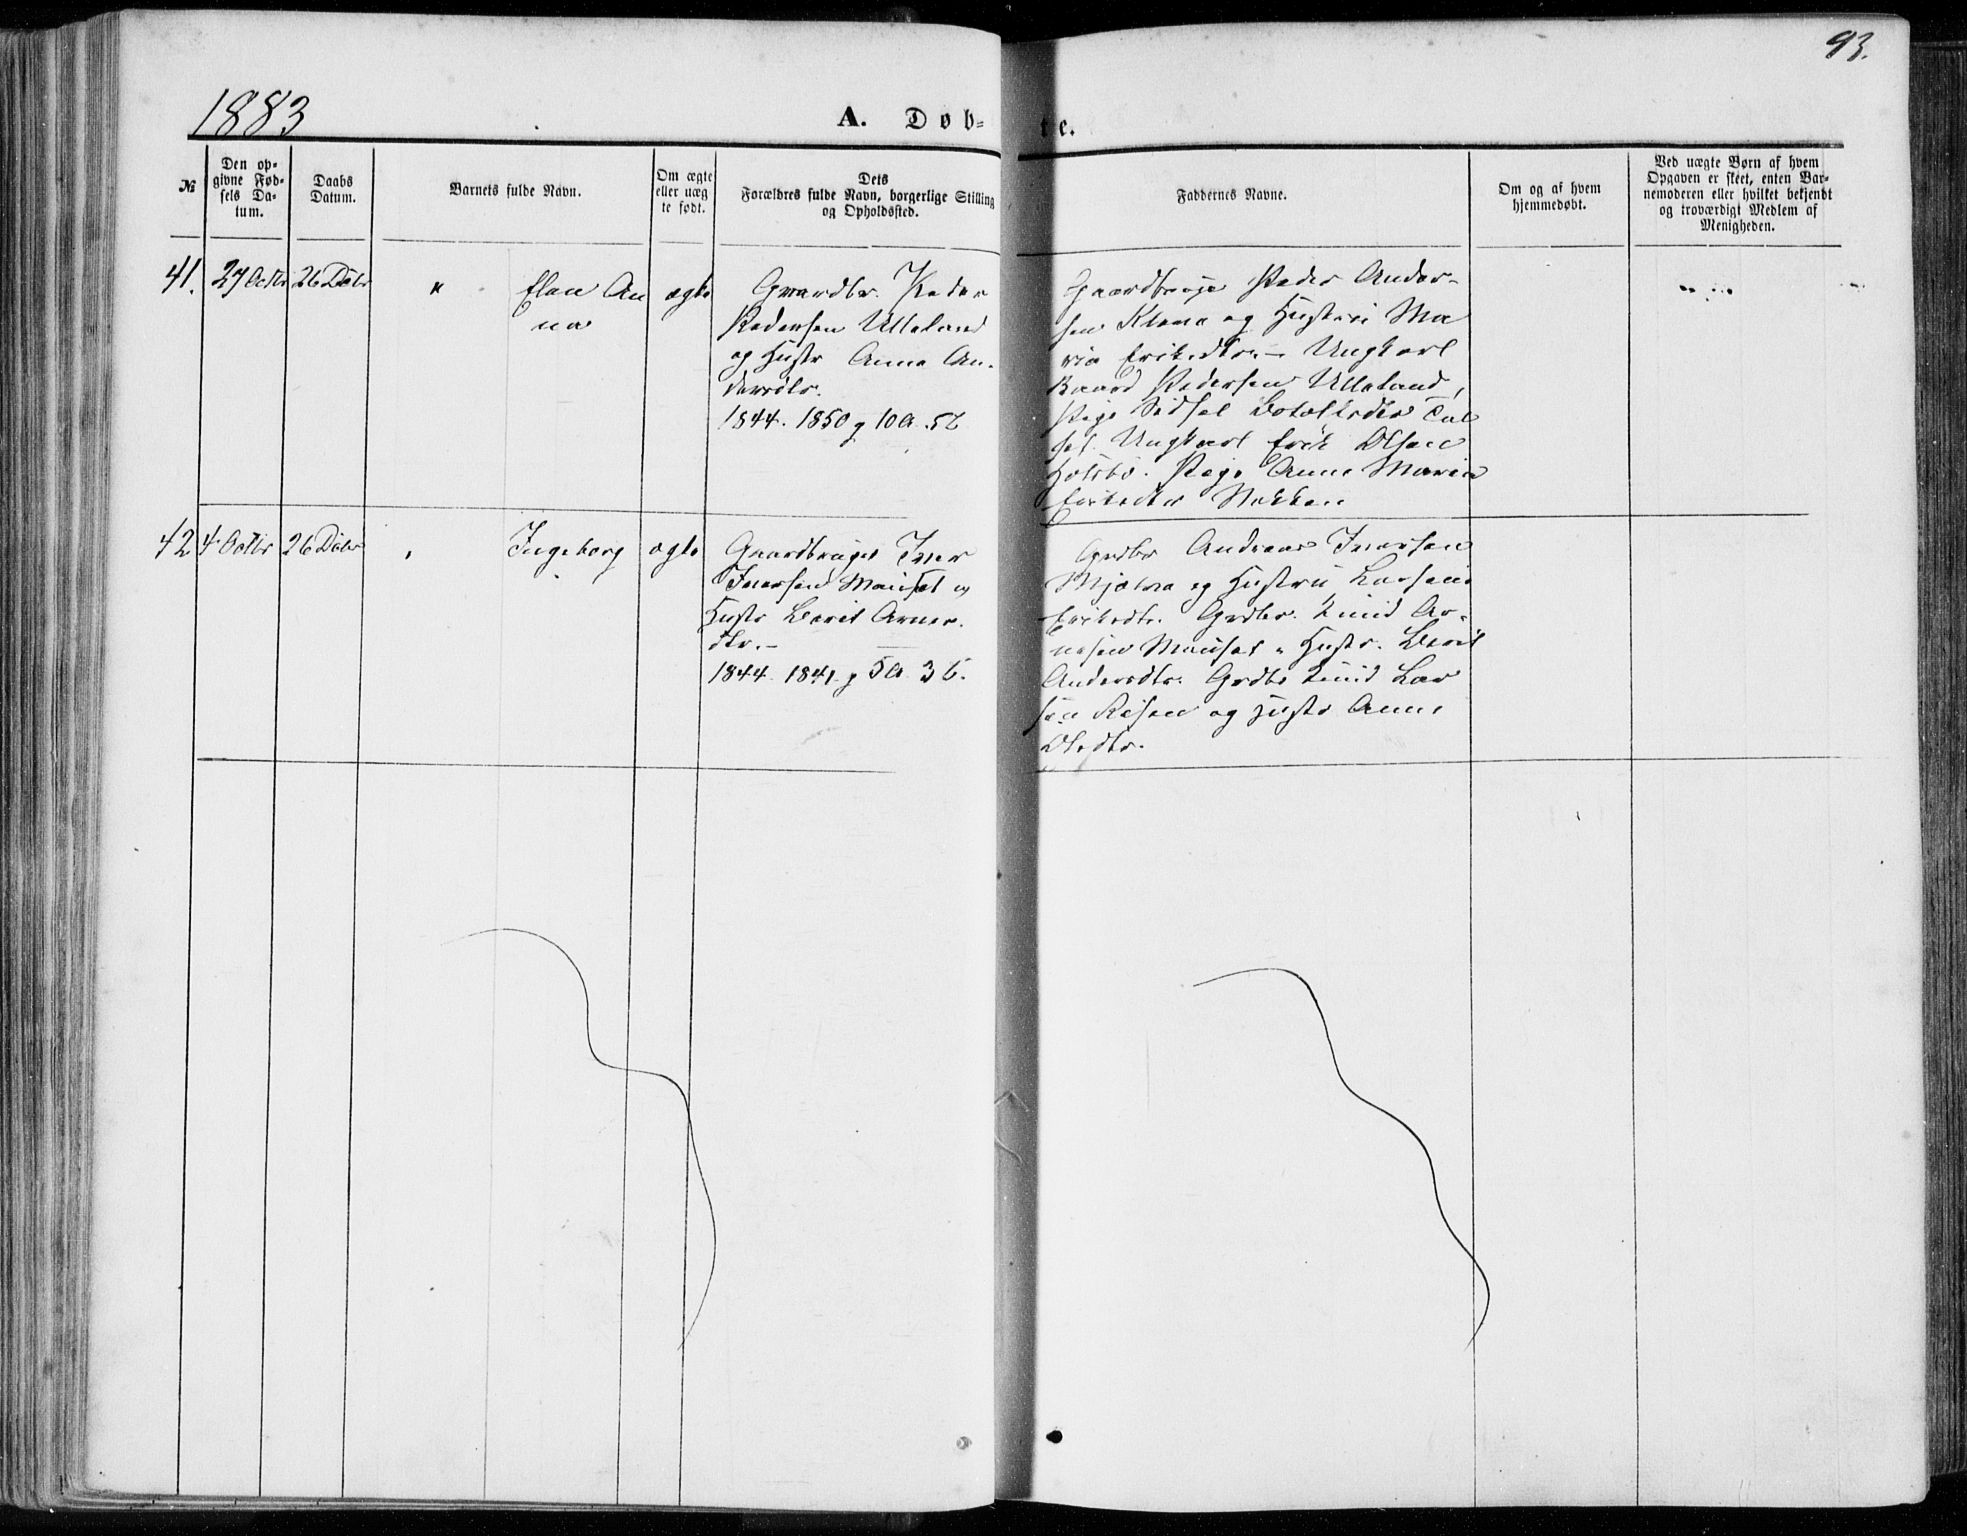 93.
1883
A. Døb-
te.
№
Den op-
givne Fød-
sels Da-
tum.
Daabs
Datum.
Barnets fulde Navn.
Om ægte
eller uæg
te født.
Dets
Forældres fulde Navn, borgerlige Stilling
og Opholdssted.
Faddernes Navne.
Om og af hvem
hjemmedøbt.
Ved uægte Børn af hvem
Opgaven er skeet, enten Bar-
nemoderen eller hvilket bekjendt
og troværdigt Medlem af
Menigheden.
41. 27 Octbr 26 Dcbr " Elen An
na
ægte
Gaardbr. Peder
Pedersen Ulleland
og Hustr Anne An-
dersdtr.
1844. 1850 g 10 A. 5 T
Gaardbruger Peder Ander-
sen Klova og Hustru Ma
ria Eriksdtr. – Ungkarl
Baard Pedersen Ulleland,
Pige Sidsel
Ungkarl Erik Olsen
Pige Anne Marie
Eriksdtr Nakken
42 4 Octbr 26 Dcbr Ingeborg ægte
Gaardbruger Iver
Iversen Mauset og
Hustr Berit Arnes.
dtr. –
1844. 1841. g 5 A. 3 T.
Grdbr Andreas Iversen
Mjelva og Hustru
Eriksdtr. Grdbr. Knud Ar-
nesen Mauset " Hustr. Berit
Andersdtr. Grdbr Knud Lar
sen og Hustr Anne
Olsdtr.